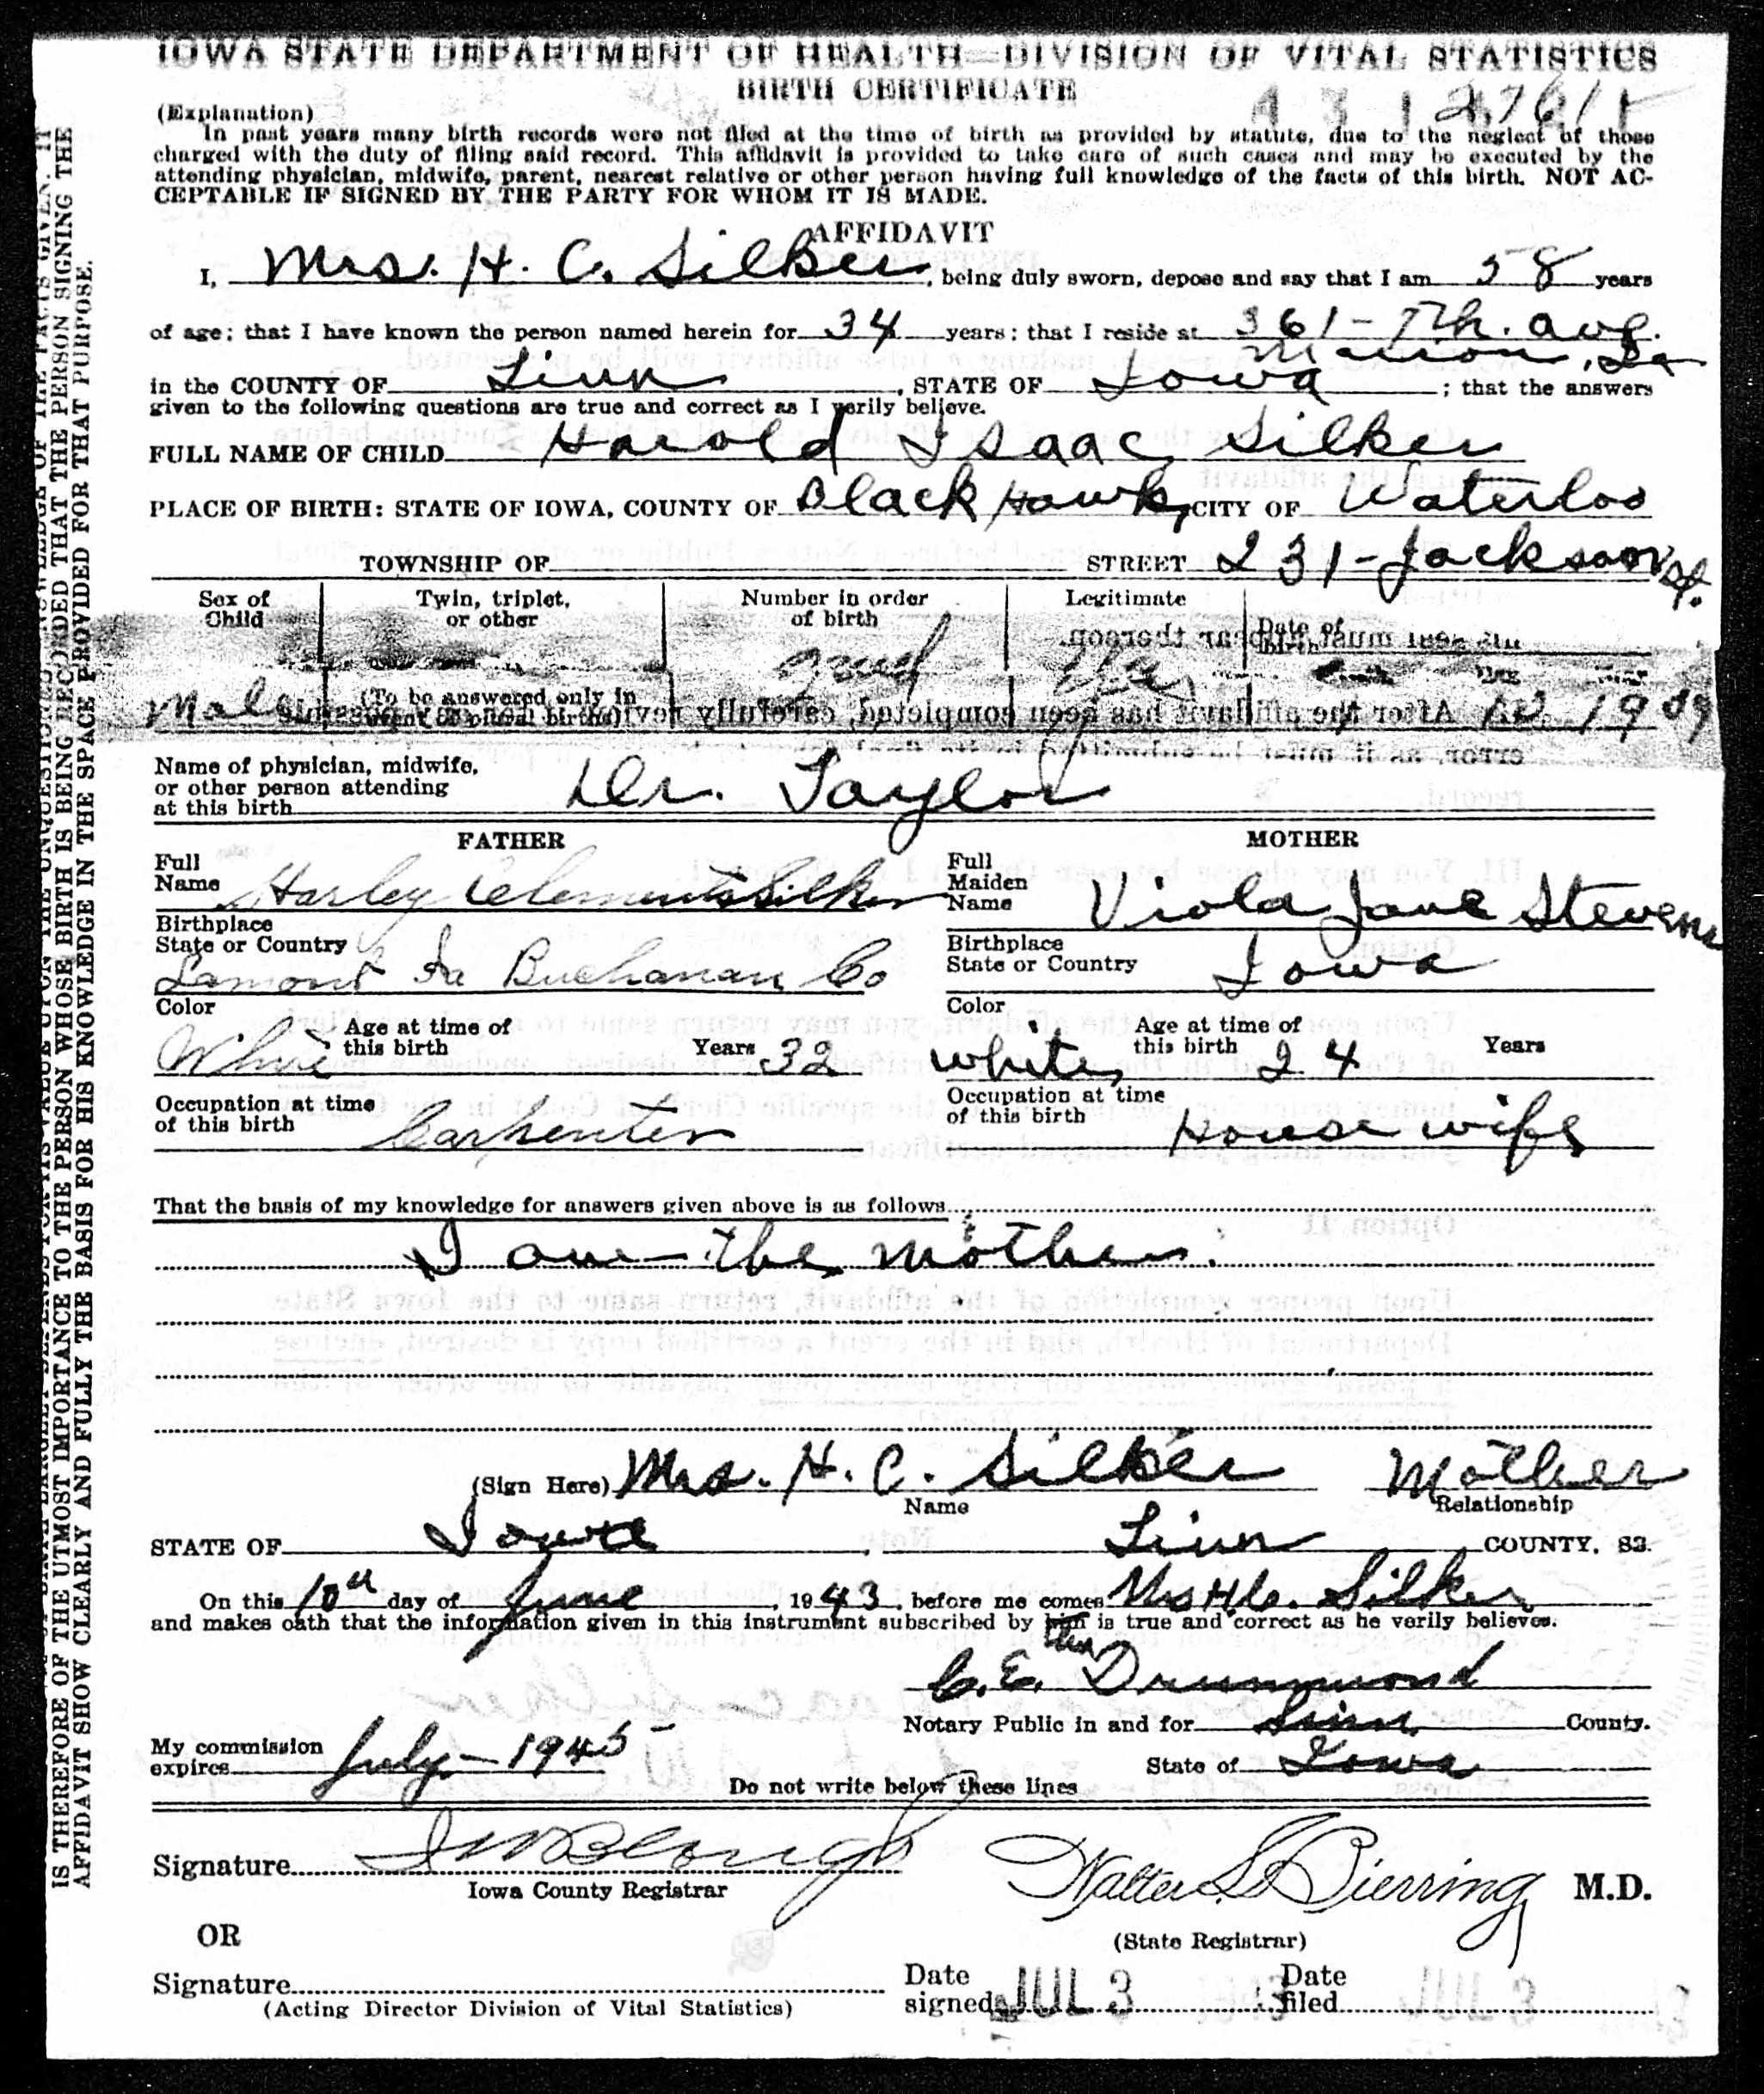 IOWA STATE DEPARTMENT OF HEALTH—DIVISION OF VITAL STATISTICS
BIRTH CERTIFICATE
(Explanation)
In past years many birth records were not filed at the time of birth as provided by statute, due to the neglect of those
charged with the duty of filing said record. This affidavit is provided to take care of such cases and may be executed by the
attending physician, midwife, parent, nearest relative or other person having full knowledge of the facts of this birth. NOT AC-
CEPTABLE IF SIGNED BY THE PARTY FOR WHOM IT IS MADE.
AFFIDAVIT
I, Mrs. H. C. Silker, being duly sworn, depose and say that I am 58 years
of age; that I have known the person named herein for 34 years; that I reside at 361-7th. ave.
Marion, Ia
in the COUNTY OF Linn, STATE OF Iowa; that the answers
given to the following questions are true and correct as I verily believe.
FULL NAME OF CHILD Harold Isaac Silker
PLACE OF BIRTH: STATE OF IOWA, COUNTY OF Black Hawk, CITY OF Waterloo
TOWNSHIP OF STREET 231-Jackson St.
Sex of Child Twin, triplet, or other Number in order of birth Legitimate Date of birth
Male (To be answered only in event of plural births) 2nd 10 1909
Name of physician, midwife,
or other person attending
at this birth Dr. Taylor
FATHER MOTHER
Full Name Harley Clements Silker Full Maiden Name Viola Jane Stevens
Birthplace State or Country Lamont Ia Buchanan Co Birthplace State or Country Iowa
Color White Age at time of this birth Years 32 Color white Age at time of this birth 24 Years
Occupation at time of this birth Carpenter Occupation at time of this birth House wife
That the basis of my knowledge for answers given above is as follows
I am the mother.
(Sign Here) Mrs. H. C. Silker Mother
Name Relationship
STATE OF Iowa, Linn COUNTY, SS.
On this 10th day of June, 1943, before me comes Mrs H C. Silker
and makes oath that the information given in this instrument subscribed by him is true and correct as he verily believes.
her
C. E. Drummond
Notary Public in and for Linn County.
My commission expires July - 1945 State of Iowa
Do not write below these lines
Signature
Iowa County Registrar
Walter L Bierring M.D.
(State Registrar)
OR
Signature
(Acting Director Division of Vital Statistics)
Date signed JUL 3 Date filed JUL 3
IS THEREFORE OF THE UTMOST IMPORTANCE TO THE PERSON WHOSE BIRTH IS BEING RECORDED THAT THE PERSON SIGNING THE
AFFIDAVIT SHOW CLEARLY AND FULLY THE BASIS FOR HIS KNOWLEDGE IN THE SPACE PROVIDED FOR THAT PURPOSE.